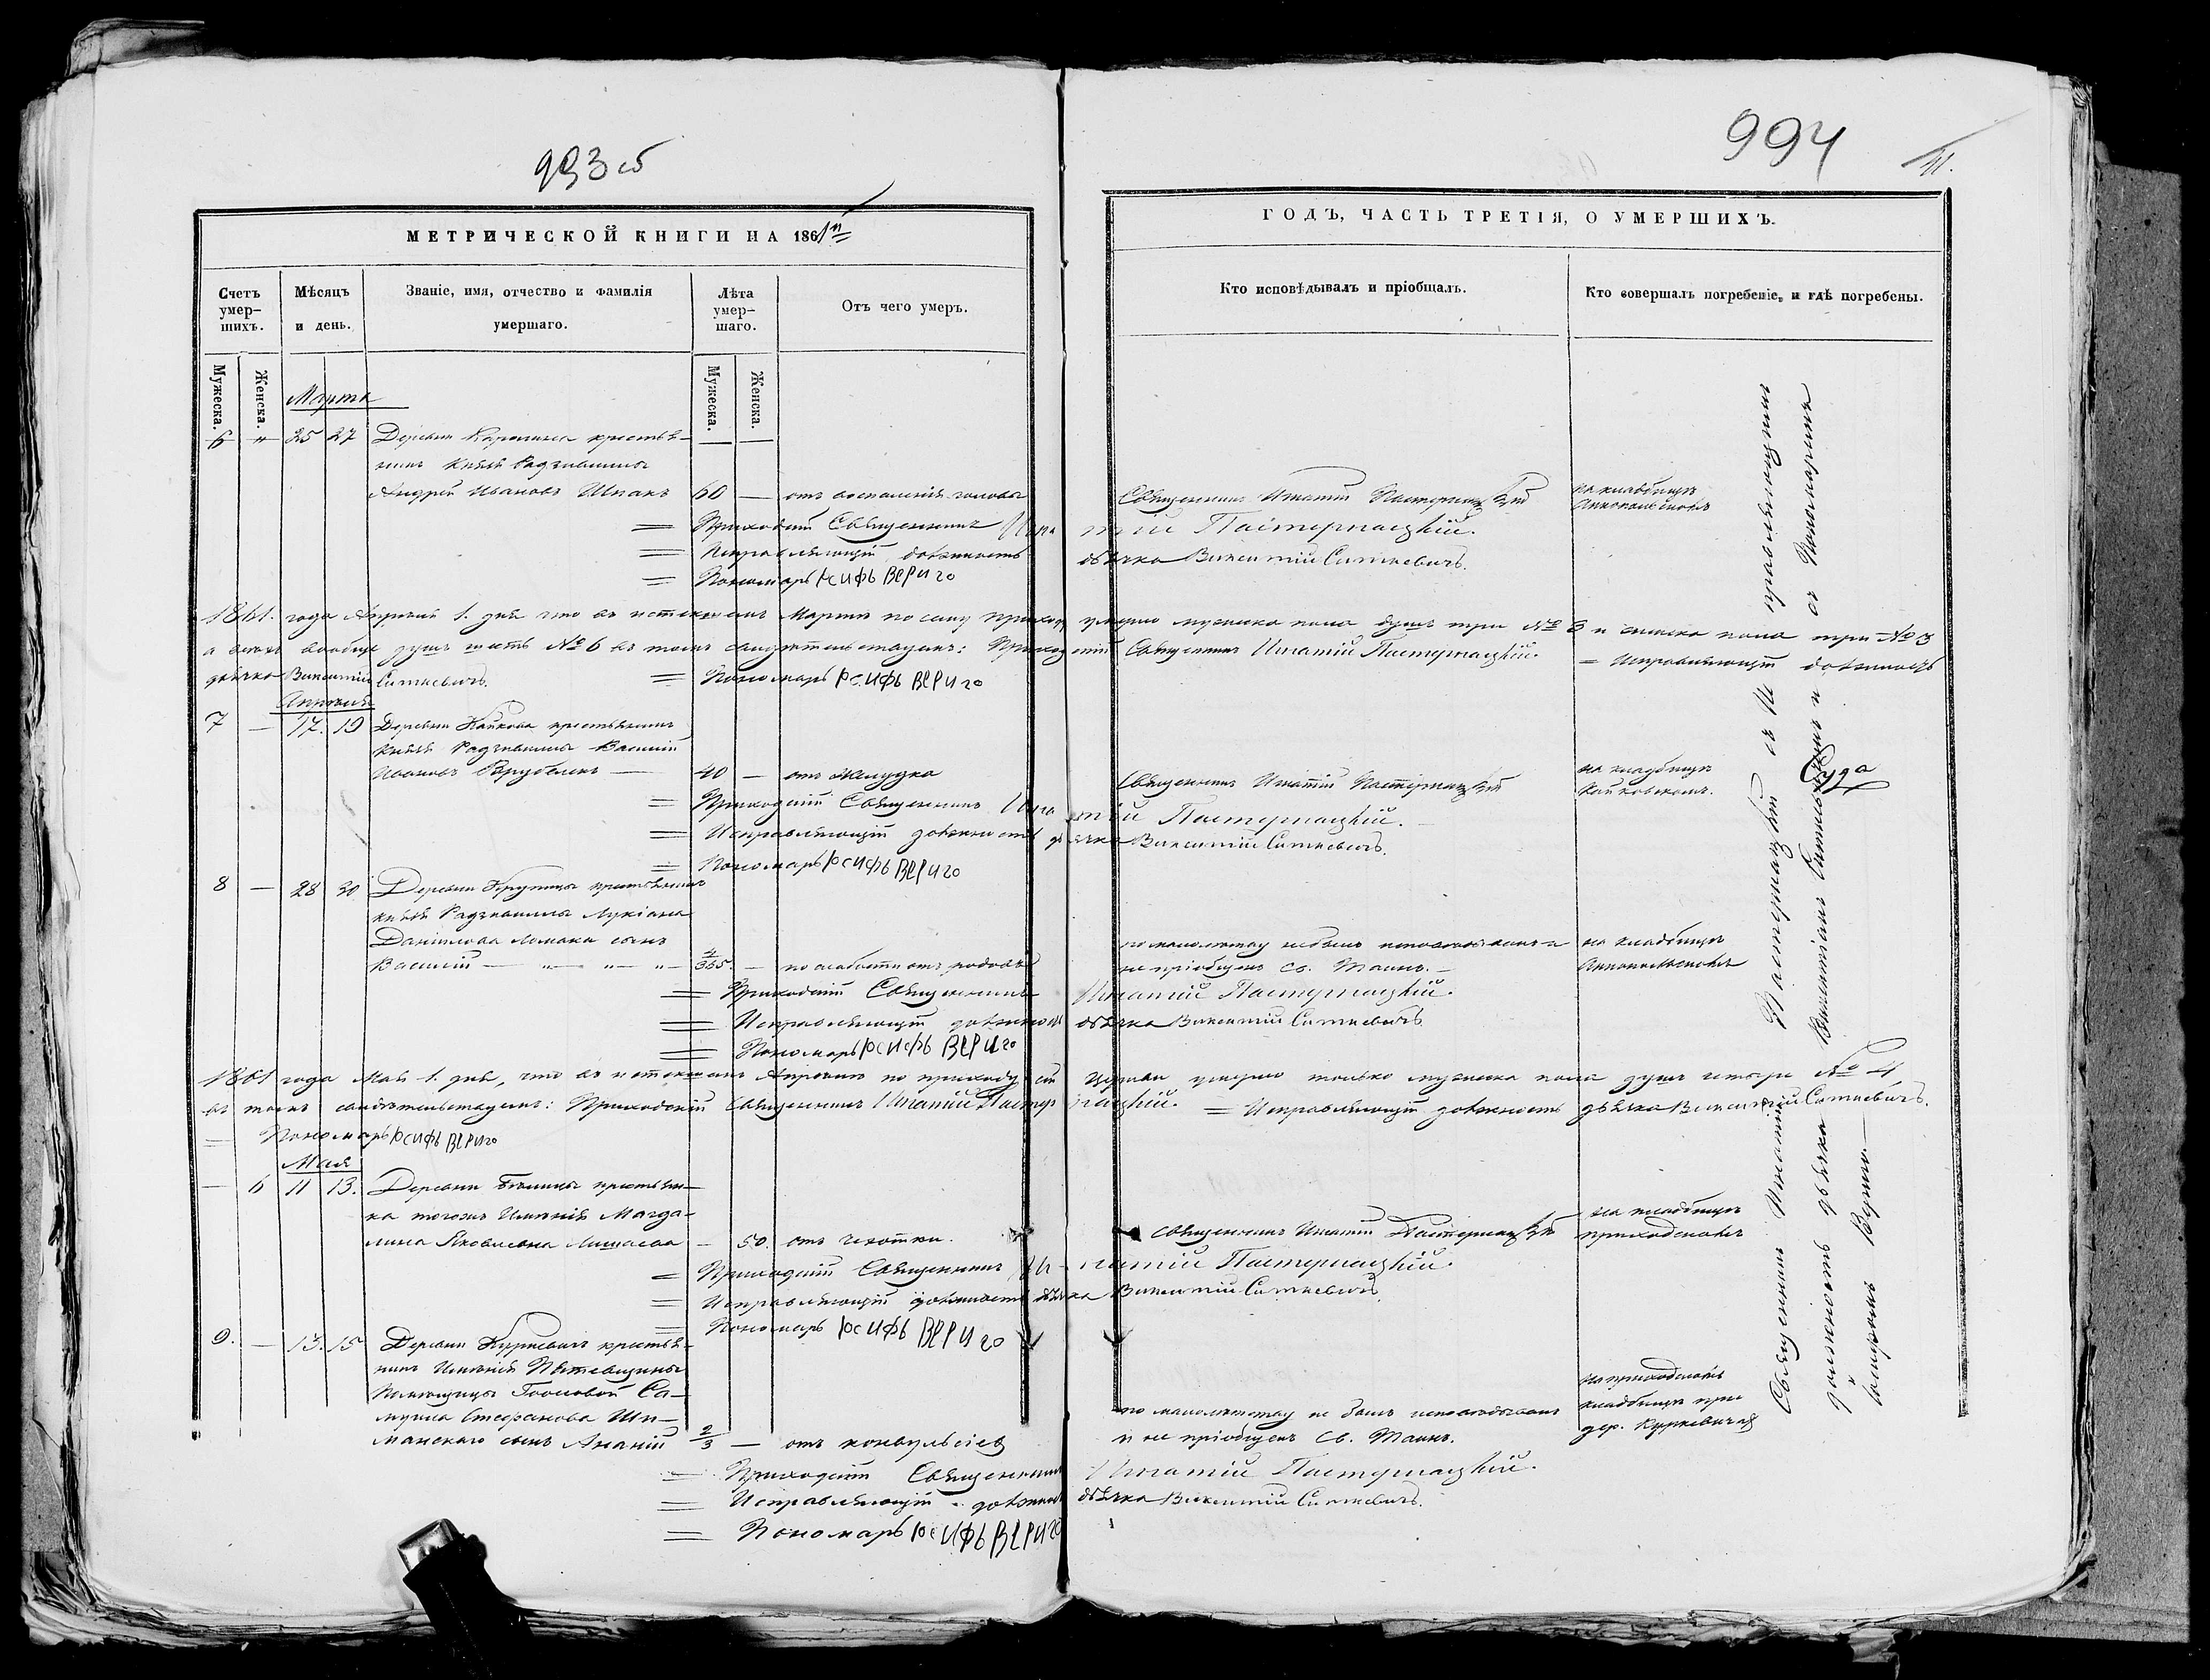 993 об
МЕТРИЧЕСКОЙ КНИГИ НА 1861й
Счетъ умер-шихъ.
Мѣсяцъ и день.
Званіе, имя, отчество и фамилія умершаго.
Лѣта умер-шаго.
Отъ чего умеръ.
Мужеска. Женска.
Мужеска. Женска.
Марта
6 „ 25 27 Деревни крестья-
нинъ Князя Радзивилла
Андрей Ивановъ Шпакъ 60 — отъ воспаленія головы
= Приходскій Священникъ Игна
= Исправляющій должность
= Пономарь Іосифъ Верига
1861. года Апрѣля 1. дня что въ истекшемъ Мартѣ по сему приходу
а всего вообще душъ шесть № 6 въ томъ свидѣтельствуемъ: Приход
дьячка Викентій Ситкевичъ. = Пономарь Іосифъ Верига
Апрѣля
7 — 17. 19 Деревни Кайкова крестьянинъ
Князя Радзивилла Василій
Ивановъ Врублекъ — 40 — отъ желудка
= Приходскій Священникъ Игна
= Исправляющій должность дь
= Пономарь Іосифъ Верига
8 — 28 30 Деревни Крупицы крестьянина
князя Радзивилла Лукіана
Даніилова Ломака сынъ
Василій — „ — „ — „ — 4/365. — по слабости отъ родовъ
= Приходскій Священникъ
= Исправляющій должность
= Пономарь Іосифъ Верига
1861 года Мая 1. дня, что въ истекшемъ Апрѣлѣ по приходу сей
въ томъ свидѣтельствуемъ: Приходскій Священникъ Игнатій Пастер
= Пономарь Іосифъ Верига
Мая
— 6 11 13. Деревни крестьян-
ка тогожъ Имѣнія Магда-
лина Яковлевна — 50. отъ чахотки.
= Приходскій Священникъ Иг-
= Исправляющій должность дьяч
= Пономарь Іосифъ Верига
9. — 13. 15 Деревни Куркевичъ крестья-
нинъ Имѣнія Пятевщины
Помѣщицы Са-
муила Стефанова Ши-
манскаго сынъ Ананій 2/3 — отъ конвульсіевъ
= Приходскій Священникъ
= Исправляющій должность
= Пономарь Іосифъ Верига
994
ГОДЪ, ЧАСТЬ ТРЕТІЯ, О УМЕРШИХЪ.
Кто исповѣдывалъ и пріобщалъ.
Кто совершалъ погребеніе, и гдѣ погребены.
Священникъ Игнатій Пастернацкій на кладбищѣ
Аннопольскомъ
тій Пастернацкій.
дьячка Викентій Ситкевичъ.
умерло мужеска пола душъ три № 3 и женска пола три № 3
скій Священникъ Игнатій Пастернацкій. = Исправляющій должность
Священникъ Игнатій Пастернацкій на кладбищѣ
Кайковскомъ.
тій Пастернацкій.
ячка Викентій Ситкевичъ.
по малолѣтству небылъ исповѣдыванъ и на кладбищѣ
не пріобщенъ Св. Таинъ. — Аннопольскомъ
Игнатій Пастернацкій.
дьячка Викентій Ситкевичъ
Церкви умерло только мужеска пола душъ четыре № 4
нацкій. = Исправляющій должность дьячка Викентій Ситкевичъ.
Священникъ Игнатій Пастернацкій на кладбищѣ
приходскомъ
натій Пастернацкій.
ка Викентій Ситкевичъ
по малолѣтству не былъ исповѣдыванъ на приходскомъ
и не пріобщенъ Св. Таинъ. кладбищѣ при
дер. Куркевичахъ
Игнатій Пастернацкій.
дьячка Викентій Ситкевичъ.
Священникъ Игнатій Пастернацкій съ И управляющимъ
должность дьячка Викентіемъ Ситкевичемъ и съ Пономаремъ
Іосифомъ Веригою. —